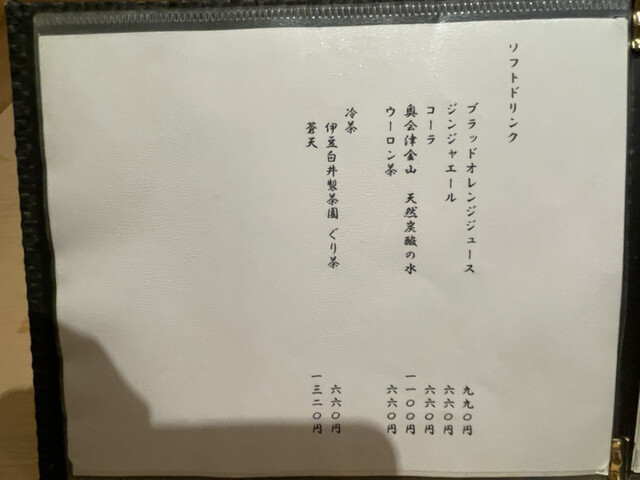 ソフトドリンク
ブラッドオレンジジュース 九九〇円
ジンジャエール 六六〇円
コーラ 六六〇円
奥会津金山 天然炭酸の水 一一〇〇円
ウーロン茶 六六〇円
冷茶
伊豆白井製茶園 ぐり茶 六六〇円
蒼天 一三二〇円